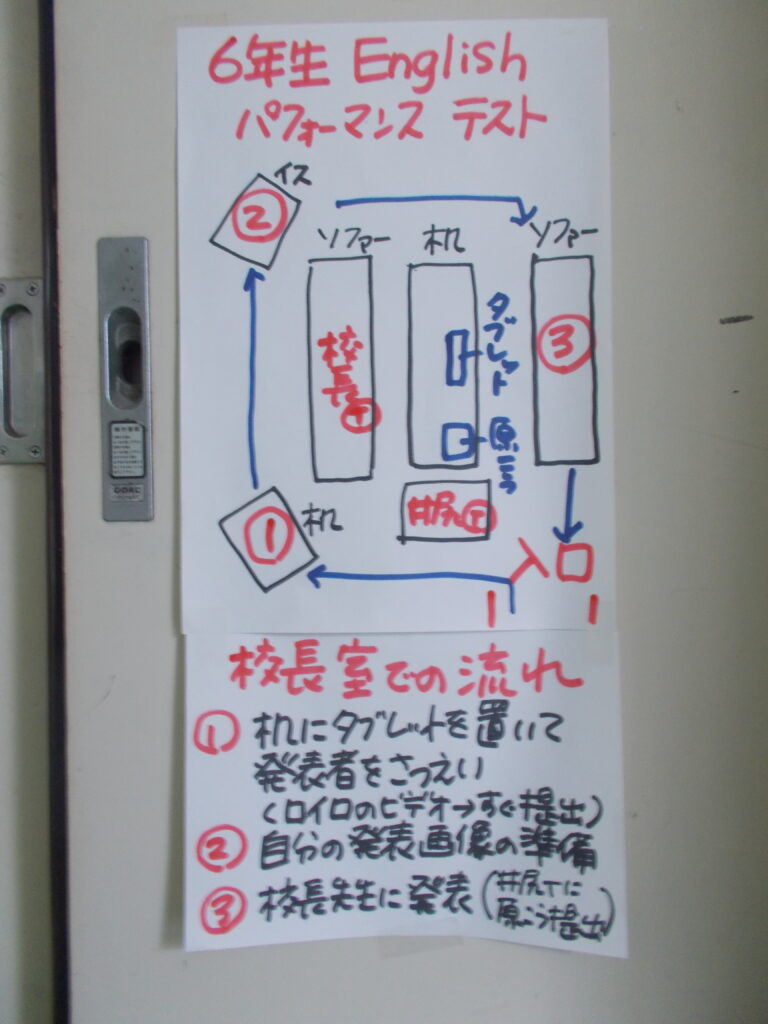 6年生 English
パフォーマンス テスト
イス
②
ソファー
机
ソファー
校長Ⓣ
タブレット
③
原こう
井尻Ⓣ
①
机
入口
校長室での流れ
① 机にタブレットを置いて
発表者をさつえい
(ロイロのビデオ→すぐ提出)
② 自分の発表画像の準備
③ 校長先生に発表(井尻Tに
原こう提出)